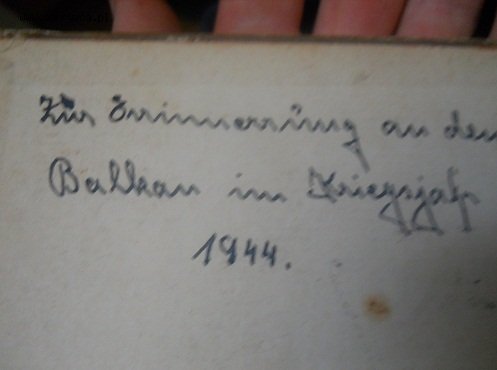 Zur Erinnerung an den
Balkan im Kriegsjahr
1944.